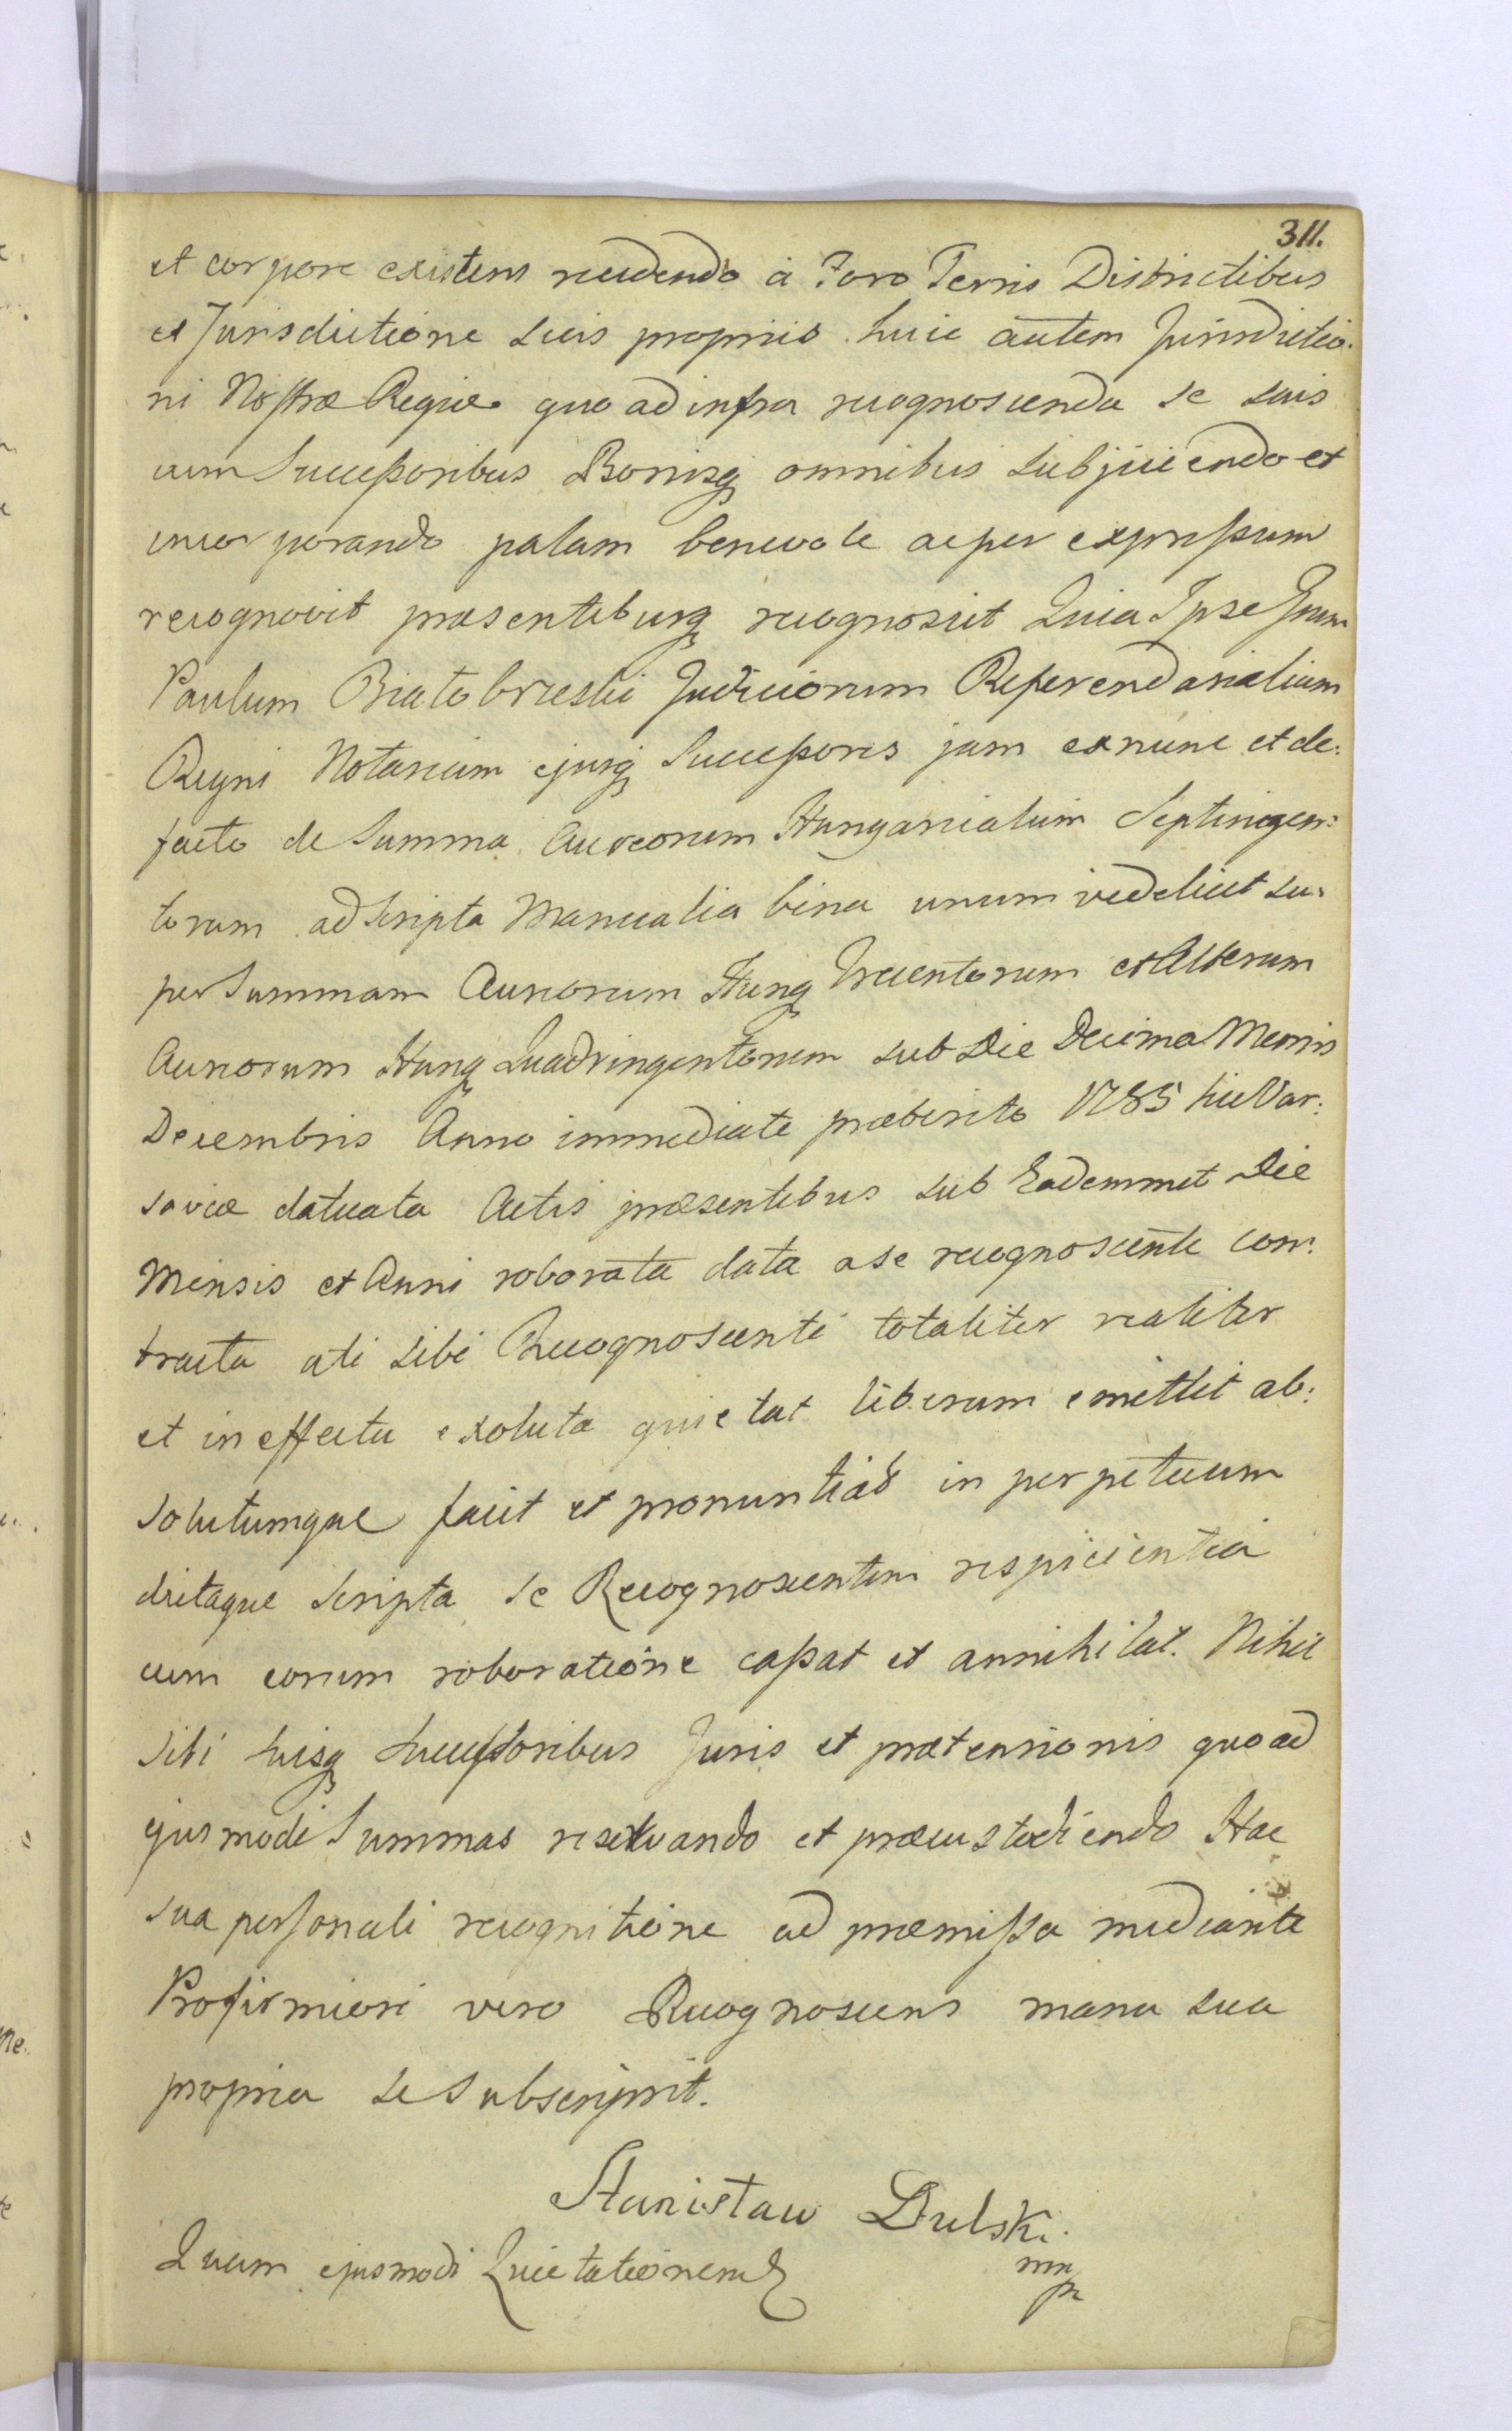 311.
et corpore existens recedendo à Foro Terris Districtibus
et Jurisdictione suis propriis huic autem Jurisdictio:
ni Nostræ Regiæ quo ad infra recognoscenda se suis
cum Succeßoribus Bonisq omnibus subjiciendo et
incorporando palam benevole ac per expreßum
recognovit præsentibusq recognoscit Quia Ipse Gnum
Paulum Białobrzeski Judiciorum Referendarialium
Regni Notarium ejusq Succeßores jam ex nunc et de:
facto de Summa Aureorum Hungaricalium Septingen:
torum ad Scripta Manualia bina unum videlicet su:
per Summam Aureorum Hung Trecentorum et Alterum
Aureorum Hung Quadringentorum sub Die Decima Mensis
Decembris Anno immediate præterito 1785 hic Var:
saviæ datuata Actis præsentibus sub Eademmet Die
Mensis et Anni roborata data a se recognoscente con:
tracta uti sibi Recognoscenti totaliter realiter
et in effectu exoluta quietat liberum emittit ab:
solutumque facit et pronuntiat in perpetuum
dictaque Scripta se Recognoscentem respicientia
cum eorum roboratione caßat et annihilat. Nihil
sibi suisq Succeßoribus Juris et prætensionis quo ad
ejusmodi Summas reservando et præcustodiendo Hac
sua personali recognitione ad præmißa mediante
Pro firmiori vero Recognoscens manu sua
propria se subscripsit.
Stanisław Dulski.
mp
Quam ejusmodi Quietationem